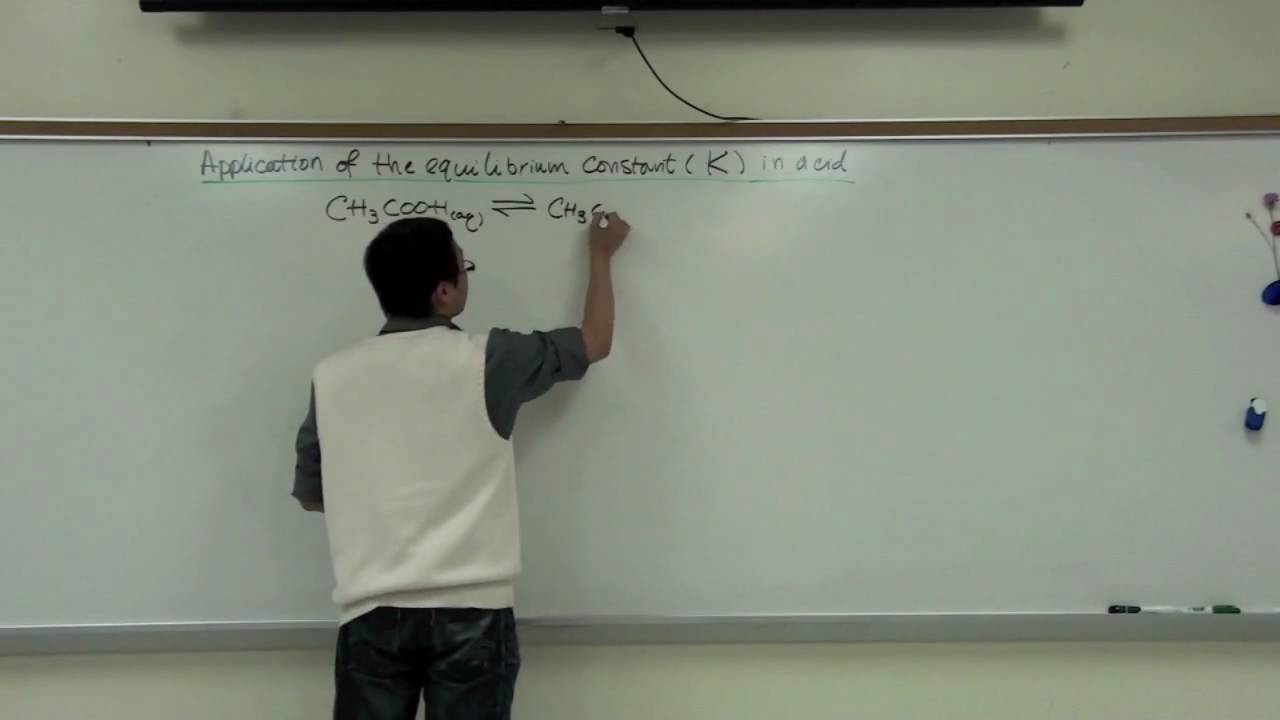 Application of the equilibrium constant (K) in acid
CH₃COOH(aq) ⇌ CH₃Co